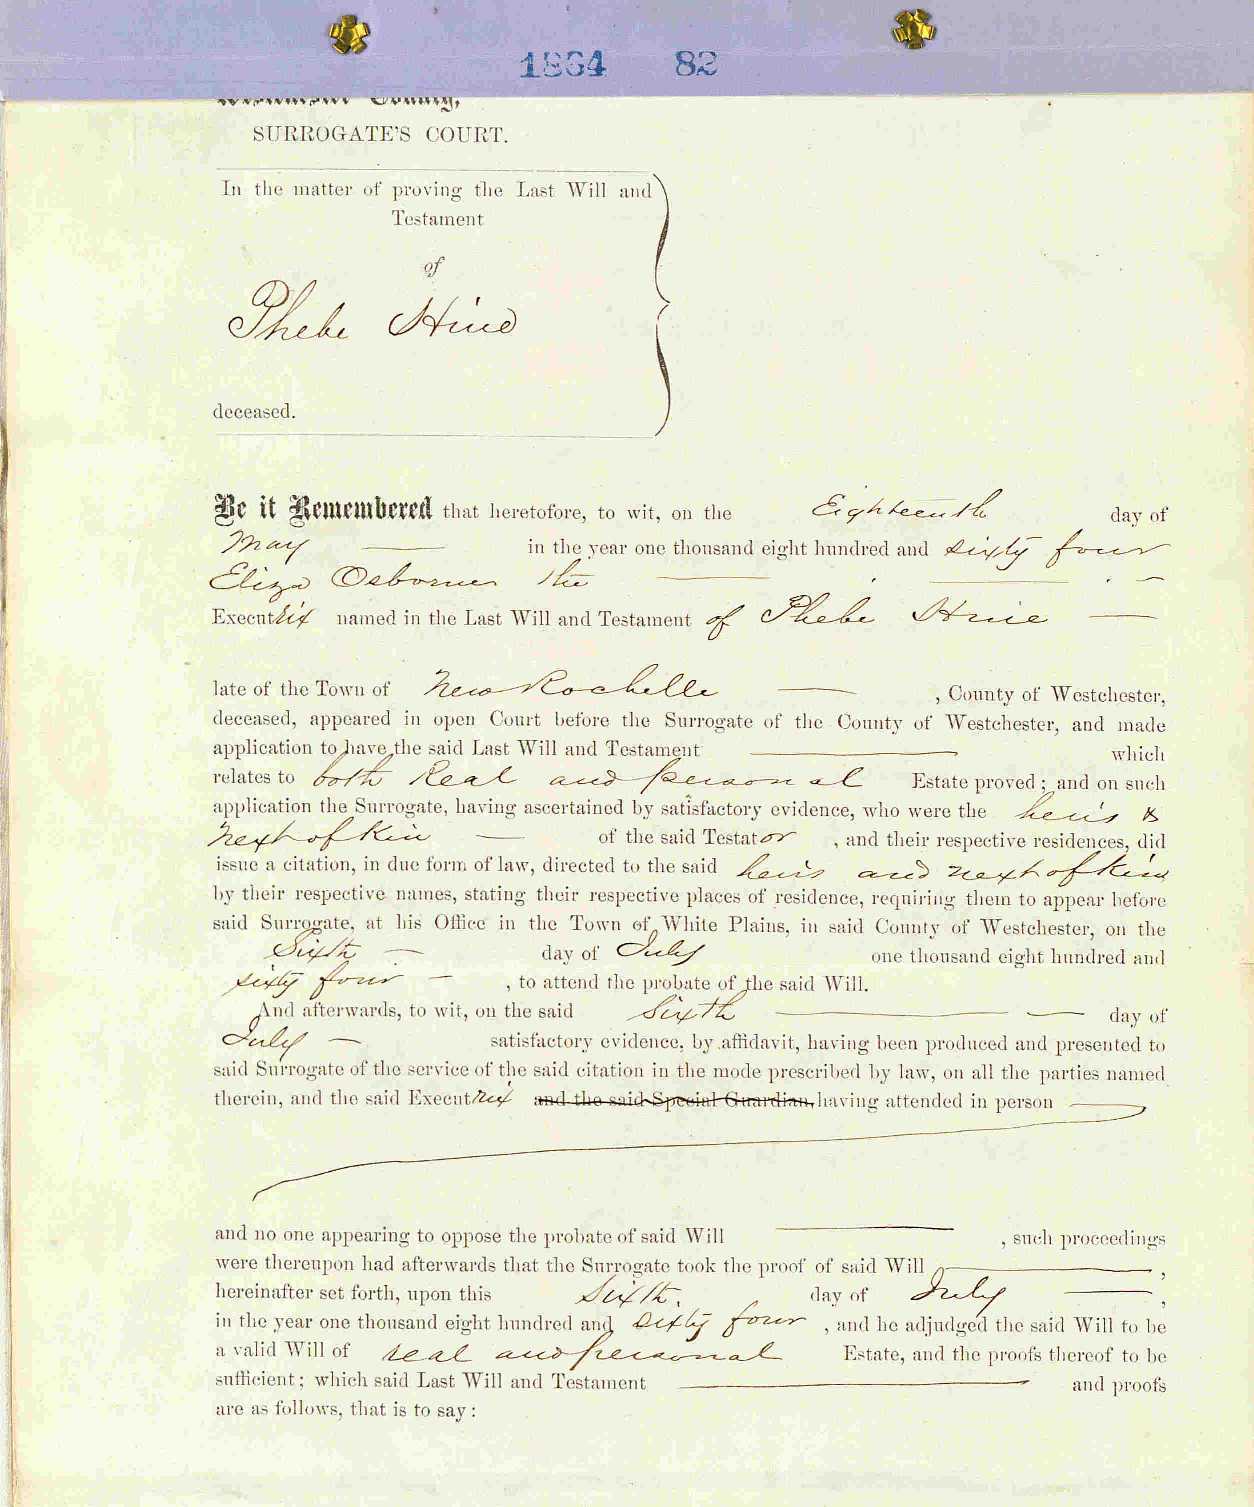 1864 82
County,
SURROGATE'S COURT.
In the matter of proving the Last Will and
Testament
of
Phebe Hine
deceased.
Be it Remembered that heretofore, to wit, on the Eighteenth day of
May in the year one thousand eight hundred and sixty four
Eliza Osborne the
Executrix named in the Last Will and Testament of Phebe Hine
late of the Town of New Rochelle , County of Westchester,
deceased, appeared in open Court before the Surrogate of the County of Westchester, and made
application to have the said Last Will and Testament which
relates to both Real and personal Estate proved; and on such
application the Surrogate, having ascertained by satisfactory evidence, who were the heirs &
next of kin of the said Testator , and their respective residences, did
issue a citation, in due form of law, directed to the said heirs and next of kin
by their respective names, stating their respective places of residence, requiring them to appear before
said Surrogate, at his Office in the Town of White Plains, in said County of Westchester, on the
Sixth day of July one thousand eight hundred and
sixty four , to attend the probate of the said Will.
And afterwards, to wit, on the said Sixth day of
July satisfactory evidence, by affidavit, having been produced and presented to
said Surrogate of the service of the said citation in the mode prescribed by law, on all the parties named
therein, and the said Executrix and the said Special Guardian, having attended in person
and no one appearing to oppose the probate of said Will , such proceedings
were thereupon had afterwards that the Surrogate took the proof of said Will ,
hereinafter set forth, upon this Sixth. day of July ,
in the year one thousand eight hundred and sixty four , and he adjudged the said Will to be
a valid Will of real and personal Estate, and the proofs thereof to be
sufficient; which said Last Will and Testament and proofs
are as follows, that is to say: